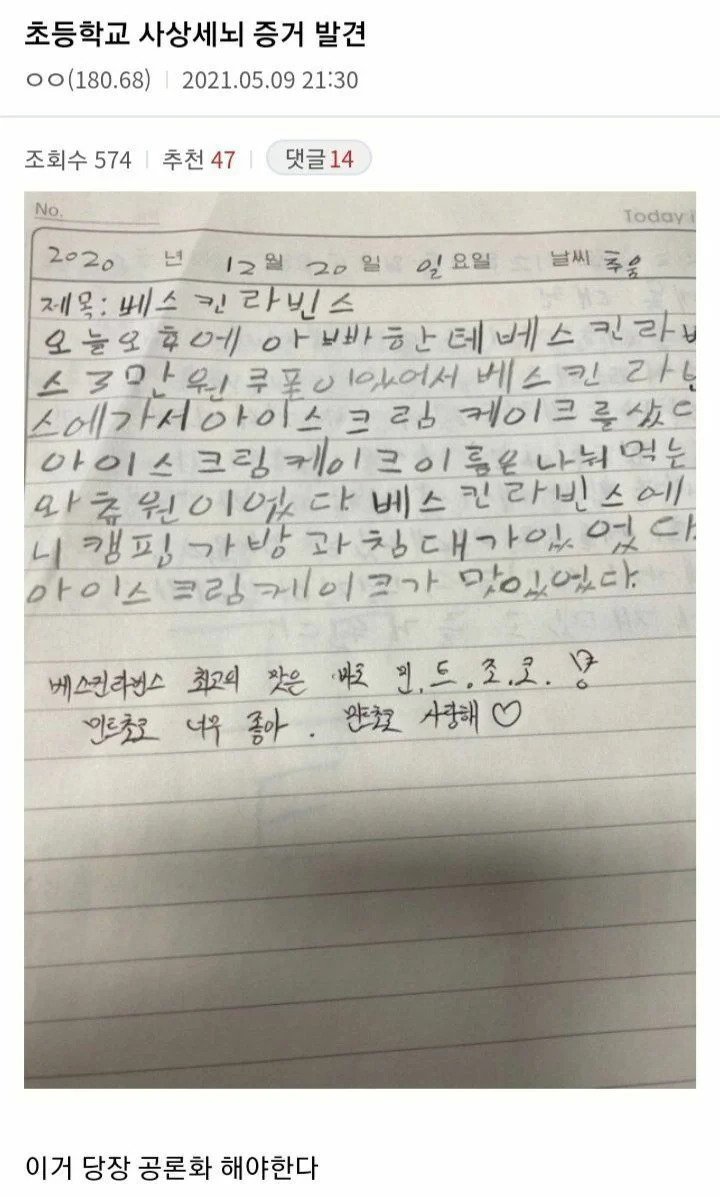 초등학교 사상세뇌 증거 발견
ㅇㅇ(180.68) 2021.05.09 21:30
조회수 574 추천 47 댓글 14
No. Today i
2020 년 12월 20일 일요일 날씨 추움
제목: 베스킨라빈스
오늘오후에 아빠한테베스킨라
스3만원쿠폰이있어서 베스킨라
스에가서아이스크림 케이크를 샀다
아이스크림케이크이름은 나눠먹는
와츄원이었다 베스킨라빈스에
니캠핑가방과침대가있었다
아이스크림케이크가 맛있었다.
베스킨라빈스 최고의 맛은 바로 민.트.초.코. 방
민트초코 너무 좋아. 민트초코 사랑해♡
이거 당장 공론화 해야한다